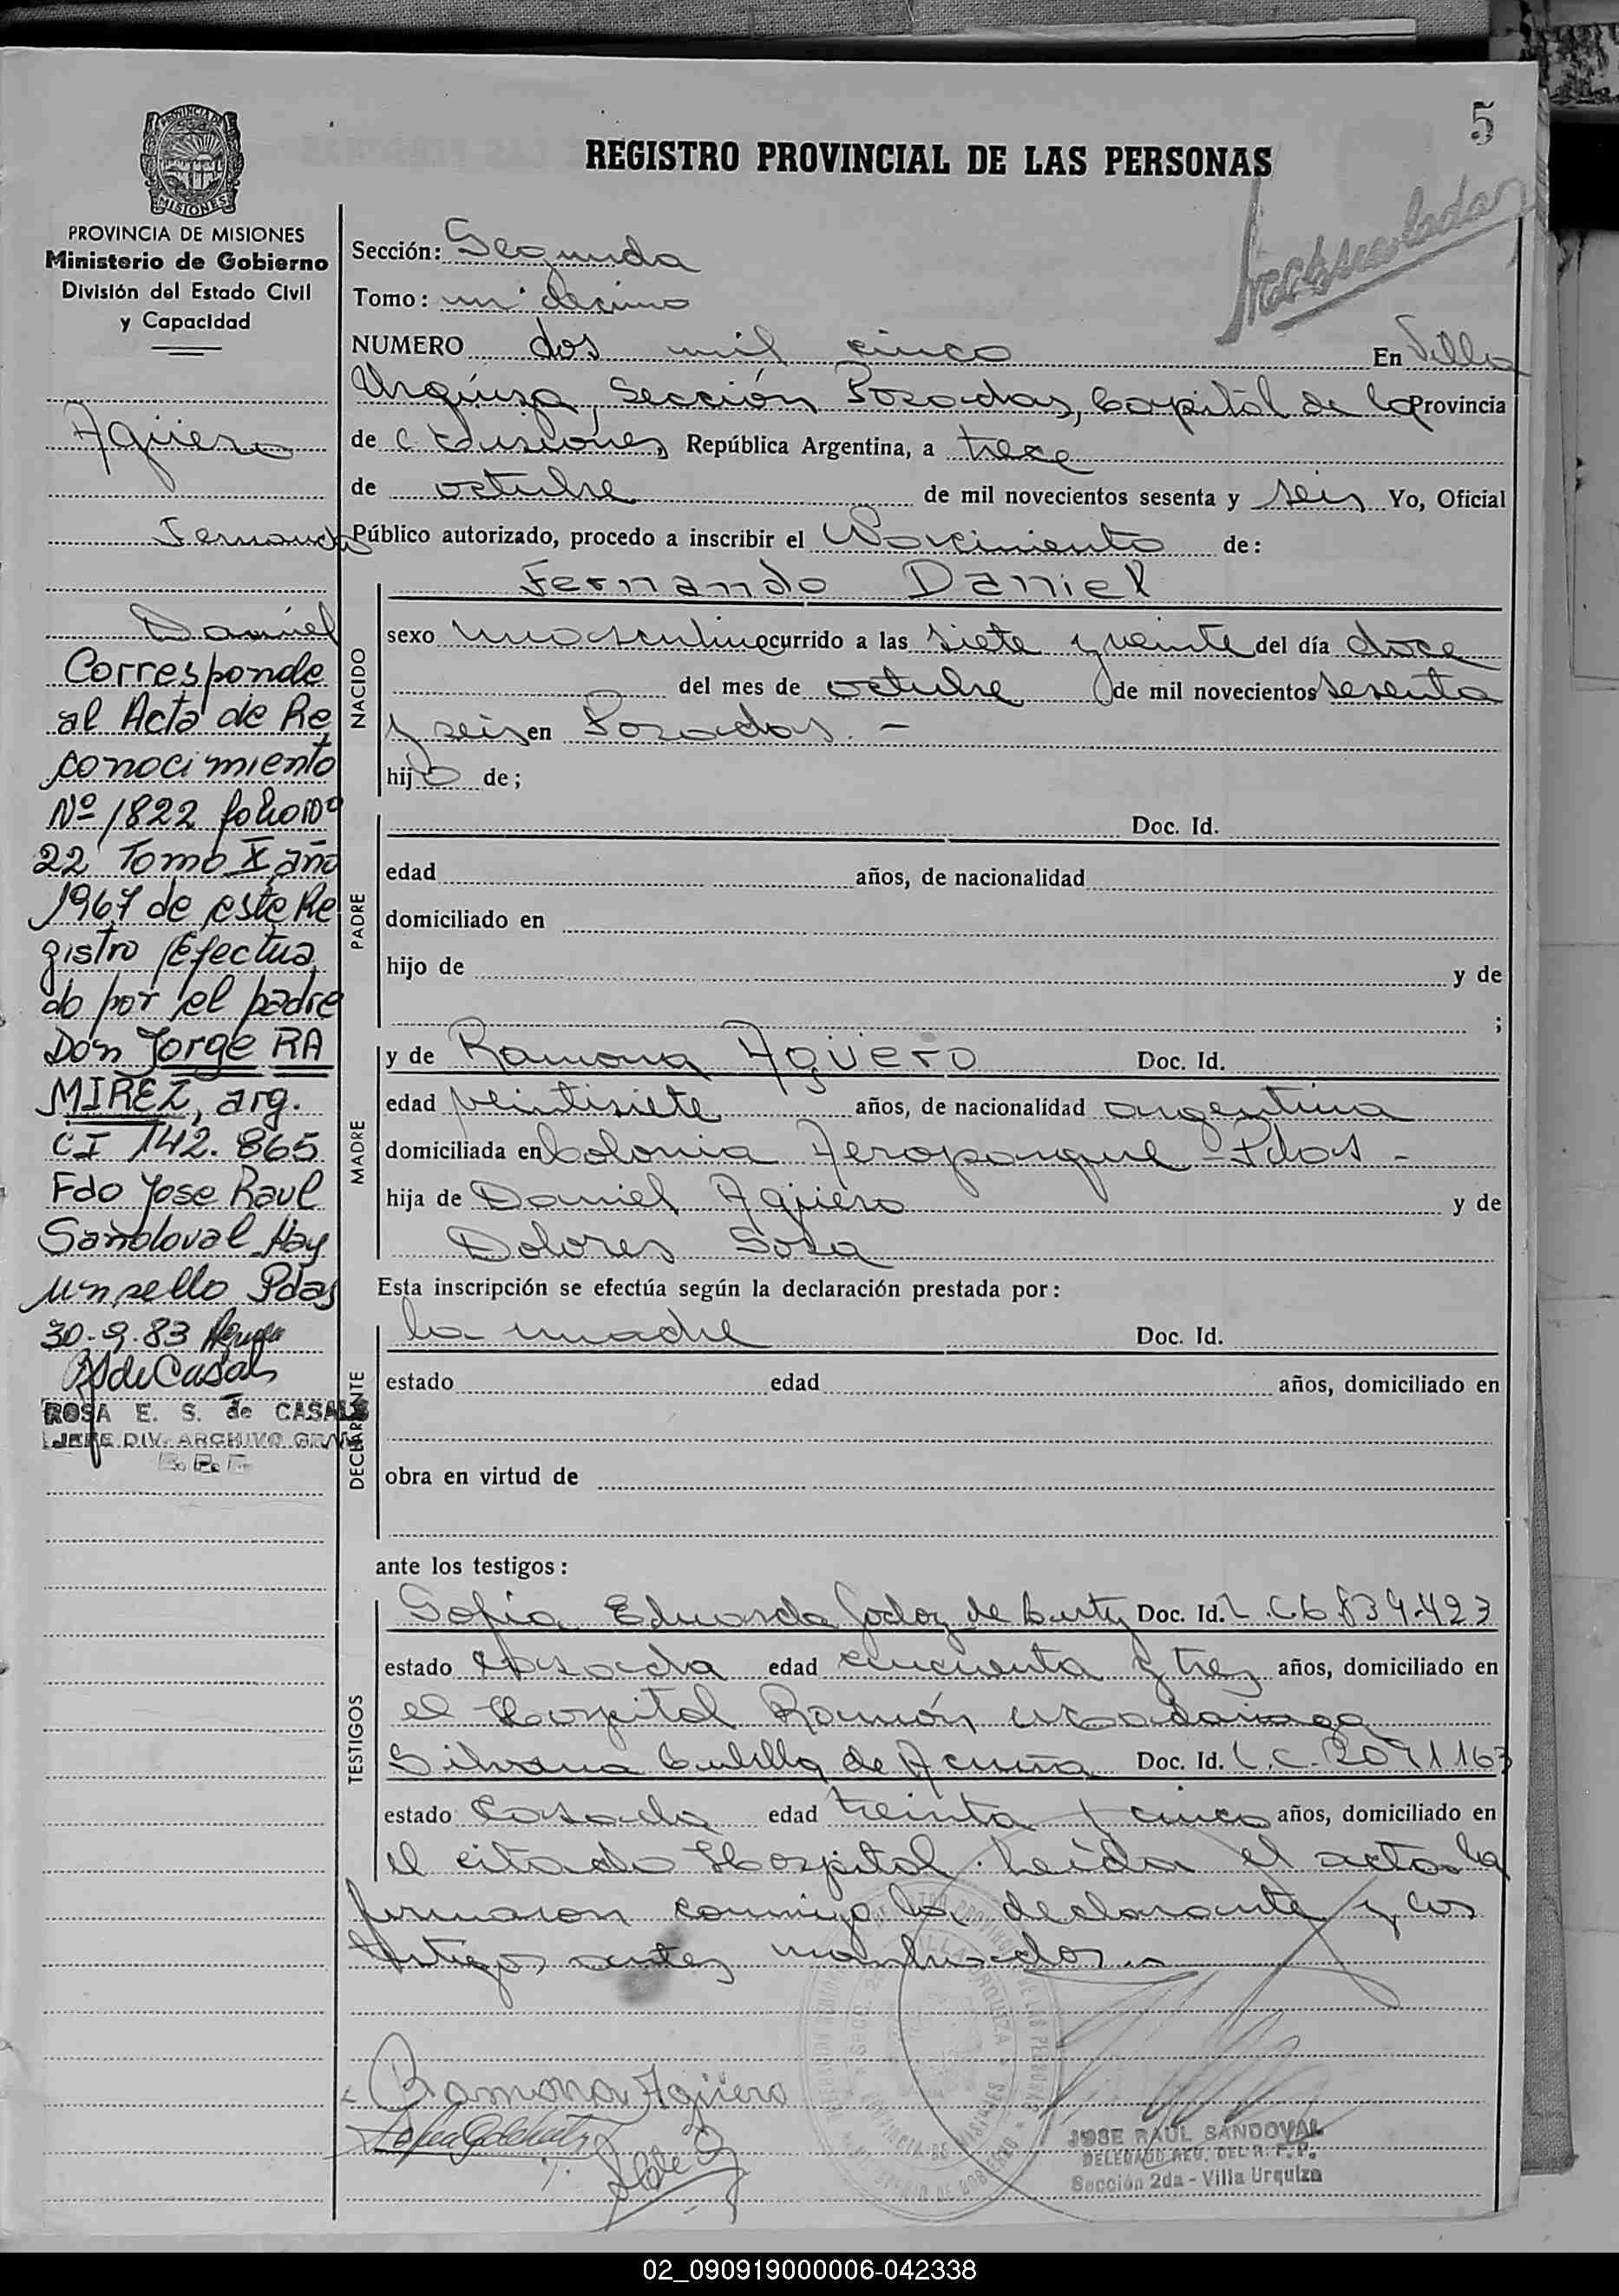 5
REGISTRO PROVINCIAL DE LAS PERSONAS
PROVINCIA DE
MISIONES
PROVINCIA DE MISIONES
Ministerio de Gobierno
División del Estado Civil
y Capacidad
Agüero
Fernando
Daniel
Corresponde
al Acta de Re
conocimiento
Nº 1822 folio
22 Tomo X año
1967 de este Re
gistro Efectua
do por el padre
Don Jorge RA
MIREZ, arg.
CI 142.865
Fdo Jose Raul
Sandoval Hay
un sello Pdas
30-9-83
ROSA E. S. de CASALS
JEFE DIV. ARCHIVO GRAL
Sección: Segunda
Tomo: un decimo
NUMERO dos mil cinco En Villa
Urquiza, Sección Posadas, Capital de la Provincia
de Misiones, República Argentina, a trece
de octubre de mil novecientos sesenta y seis Yo, Oficial
Público autorizado, procedo a inscribir el Nacimiento de:
NACIDO
Fernando Daniel
sexo masculino ocurrido a las siete y veinte del día doce
del mes de octubre de mil novecientos sesenta
y seis en Posadas. -
hijo de;
PADRE
Doc. Id.
edad años, de nacionalidad
domiciliado en
hijo de y de
;
MADRE
y de Ramona Agüero Doc. Id.
edad veintisiete años, de nacionalidad argentina
domiciliada en Colonia Aeroparque - Pdas -
hija de Daniel Agüero y de
Dolores Sosa
Esta inscripción se efectúa según la declaración prestada por:
DECLARANTE
la madre Doc. Id.
estado edad años, domiciliado en
obra en virtud de
ante los testigos:
TESTIGOS
Sofia Eduarda Godoy de Doc. Id. L.C 6.839.423
estado casada edad cincuenta y tres años, domiciliado en
el Hospital Ramón Madariaga
Silvana de Acuña Doc. Id. L.C. 2091163
estado casada edad treinta y cinco años, domiciliado en
el citado Hospital. Leída el acta la
firmaron conmigo la declarante y los
testigos antes nombrados.-
Ramona Agüero
JOSE RAUL SANDOVAL
DELEGADO REG. DEL R. P. P.
Sección 2da - Villa Urquiza
02_090919000006-042338